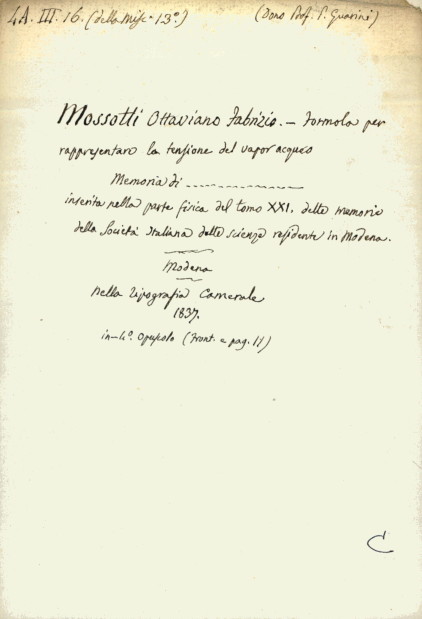 4A. III. 16. (della Misc. 13º.) (Dono Prof. P. Guarini)
Mossotti Ottaviano Fabrizio. — Formola per
rappresentare la tensione del vapor acqueo
Memoria di ....................
inserita nella parte fisica del tomo XXI. delle memorie
della Società Italiana delle scienze residente in Modena.
Modena
nella Tipografia Camerale
1837.
in-4º. opuscolo (Front. e pag. 11)
C